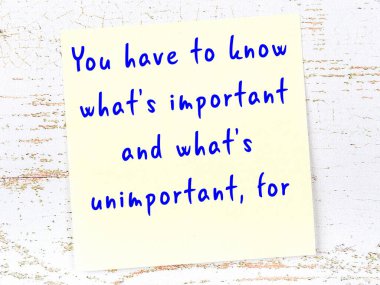 You have to know
what's important
and what's
unimportant, for